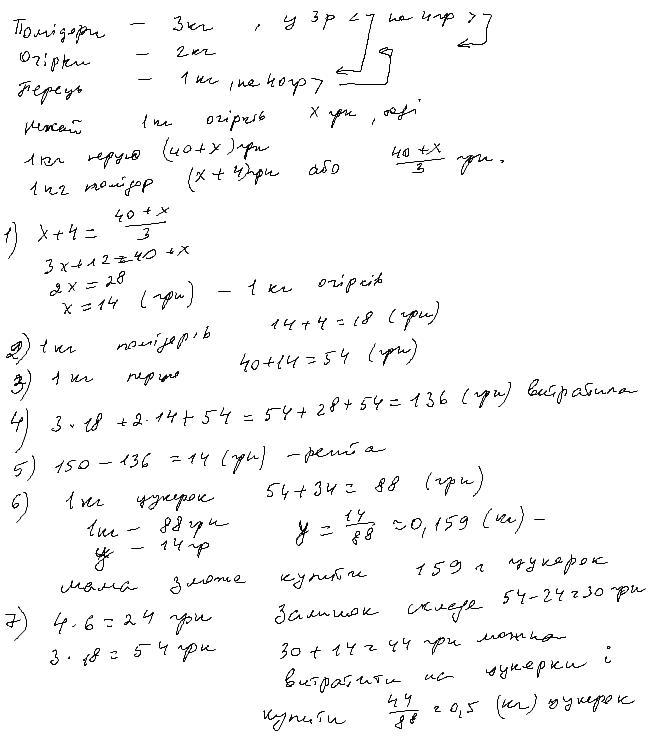 Помідори – 3кг , у 3р < на 4гр >
Огірки – 2кг
Перець – 1кг, на 40гр >
Нехай 1кг огірків x грн, тоді
1кг перцю (40+x)грн
1кг помідор (x+4)грн або \frac{40+x}{3} грн.
1) x+4 = \frac{40+x}{3}
3x+12=40+x
2x=28
x=14 (грн) – 1кг огірків
2) 1кг помідорів 14+4=18 (грн)
3) 1кг перцю 40+14=54 (грн)
4) 3·18+2·14+54=54+28+54=136 (грн) витратила
5) 150–136=14 (грн) – решта
6) 1кг цукерок 54+34=88 (грн)
1кг – 88грн y=\frac{14}{88}≈0,159 (кг) –
y – 14гр
мама зможе купити 159г цукерок
7) 4·6=24 грн Залишок складе 54-24=30 грн
3·18=54 грн 30+14=44 грн можна
витратити на цукерки і
купити \frac{44}{88}=0,5 (кг) цукерок